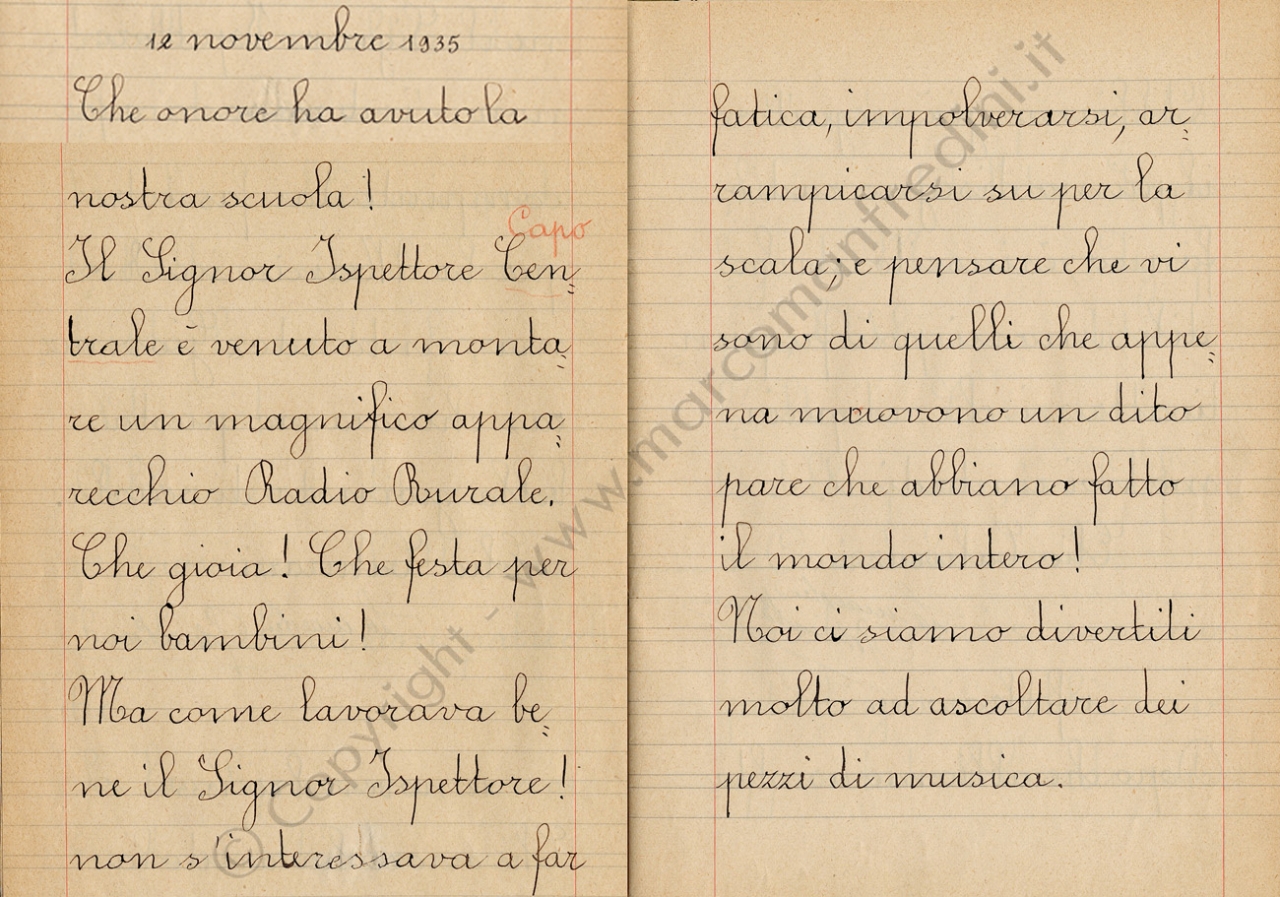 12 novembre 1935
Che onore ha avuto la
nostra scuola!
Capo
Il Signor Ispettore Cen=
trale è venuto a monta=
re un magnifico appa=
recchio Radio Rurale.
Che gioia! Che festa per
noi bambini!
Ma come lavorava be=
ne il Signor Ispettore!
non s'interessava a far
fatica, impolverarsi, ar=
rampicarsi su per la
scala; e pensare che vi
sono di quelli che appe=
na muovono un dito
pare che abbiano fatto
il mondo intero!
Noi ci siamo divertiti
molto ad ascoltare dei
pezzi di musica.
© Copyright - www.marcomanfredini.it